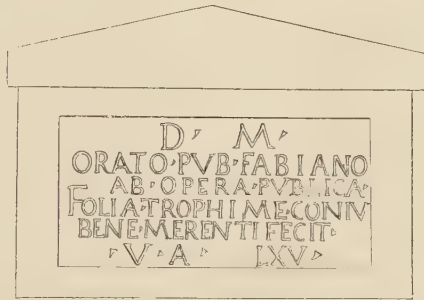 D · M ·
ORATO · PVB · FABIANO
AB · OPERA · PVBLICA ·
FOLIA · TROPHIME · CONIV
BENE · MERENTI FECIT ·
· V · A · IXV ·